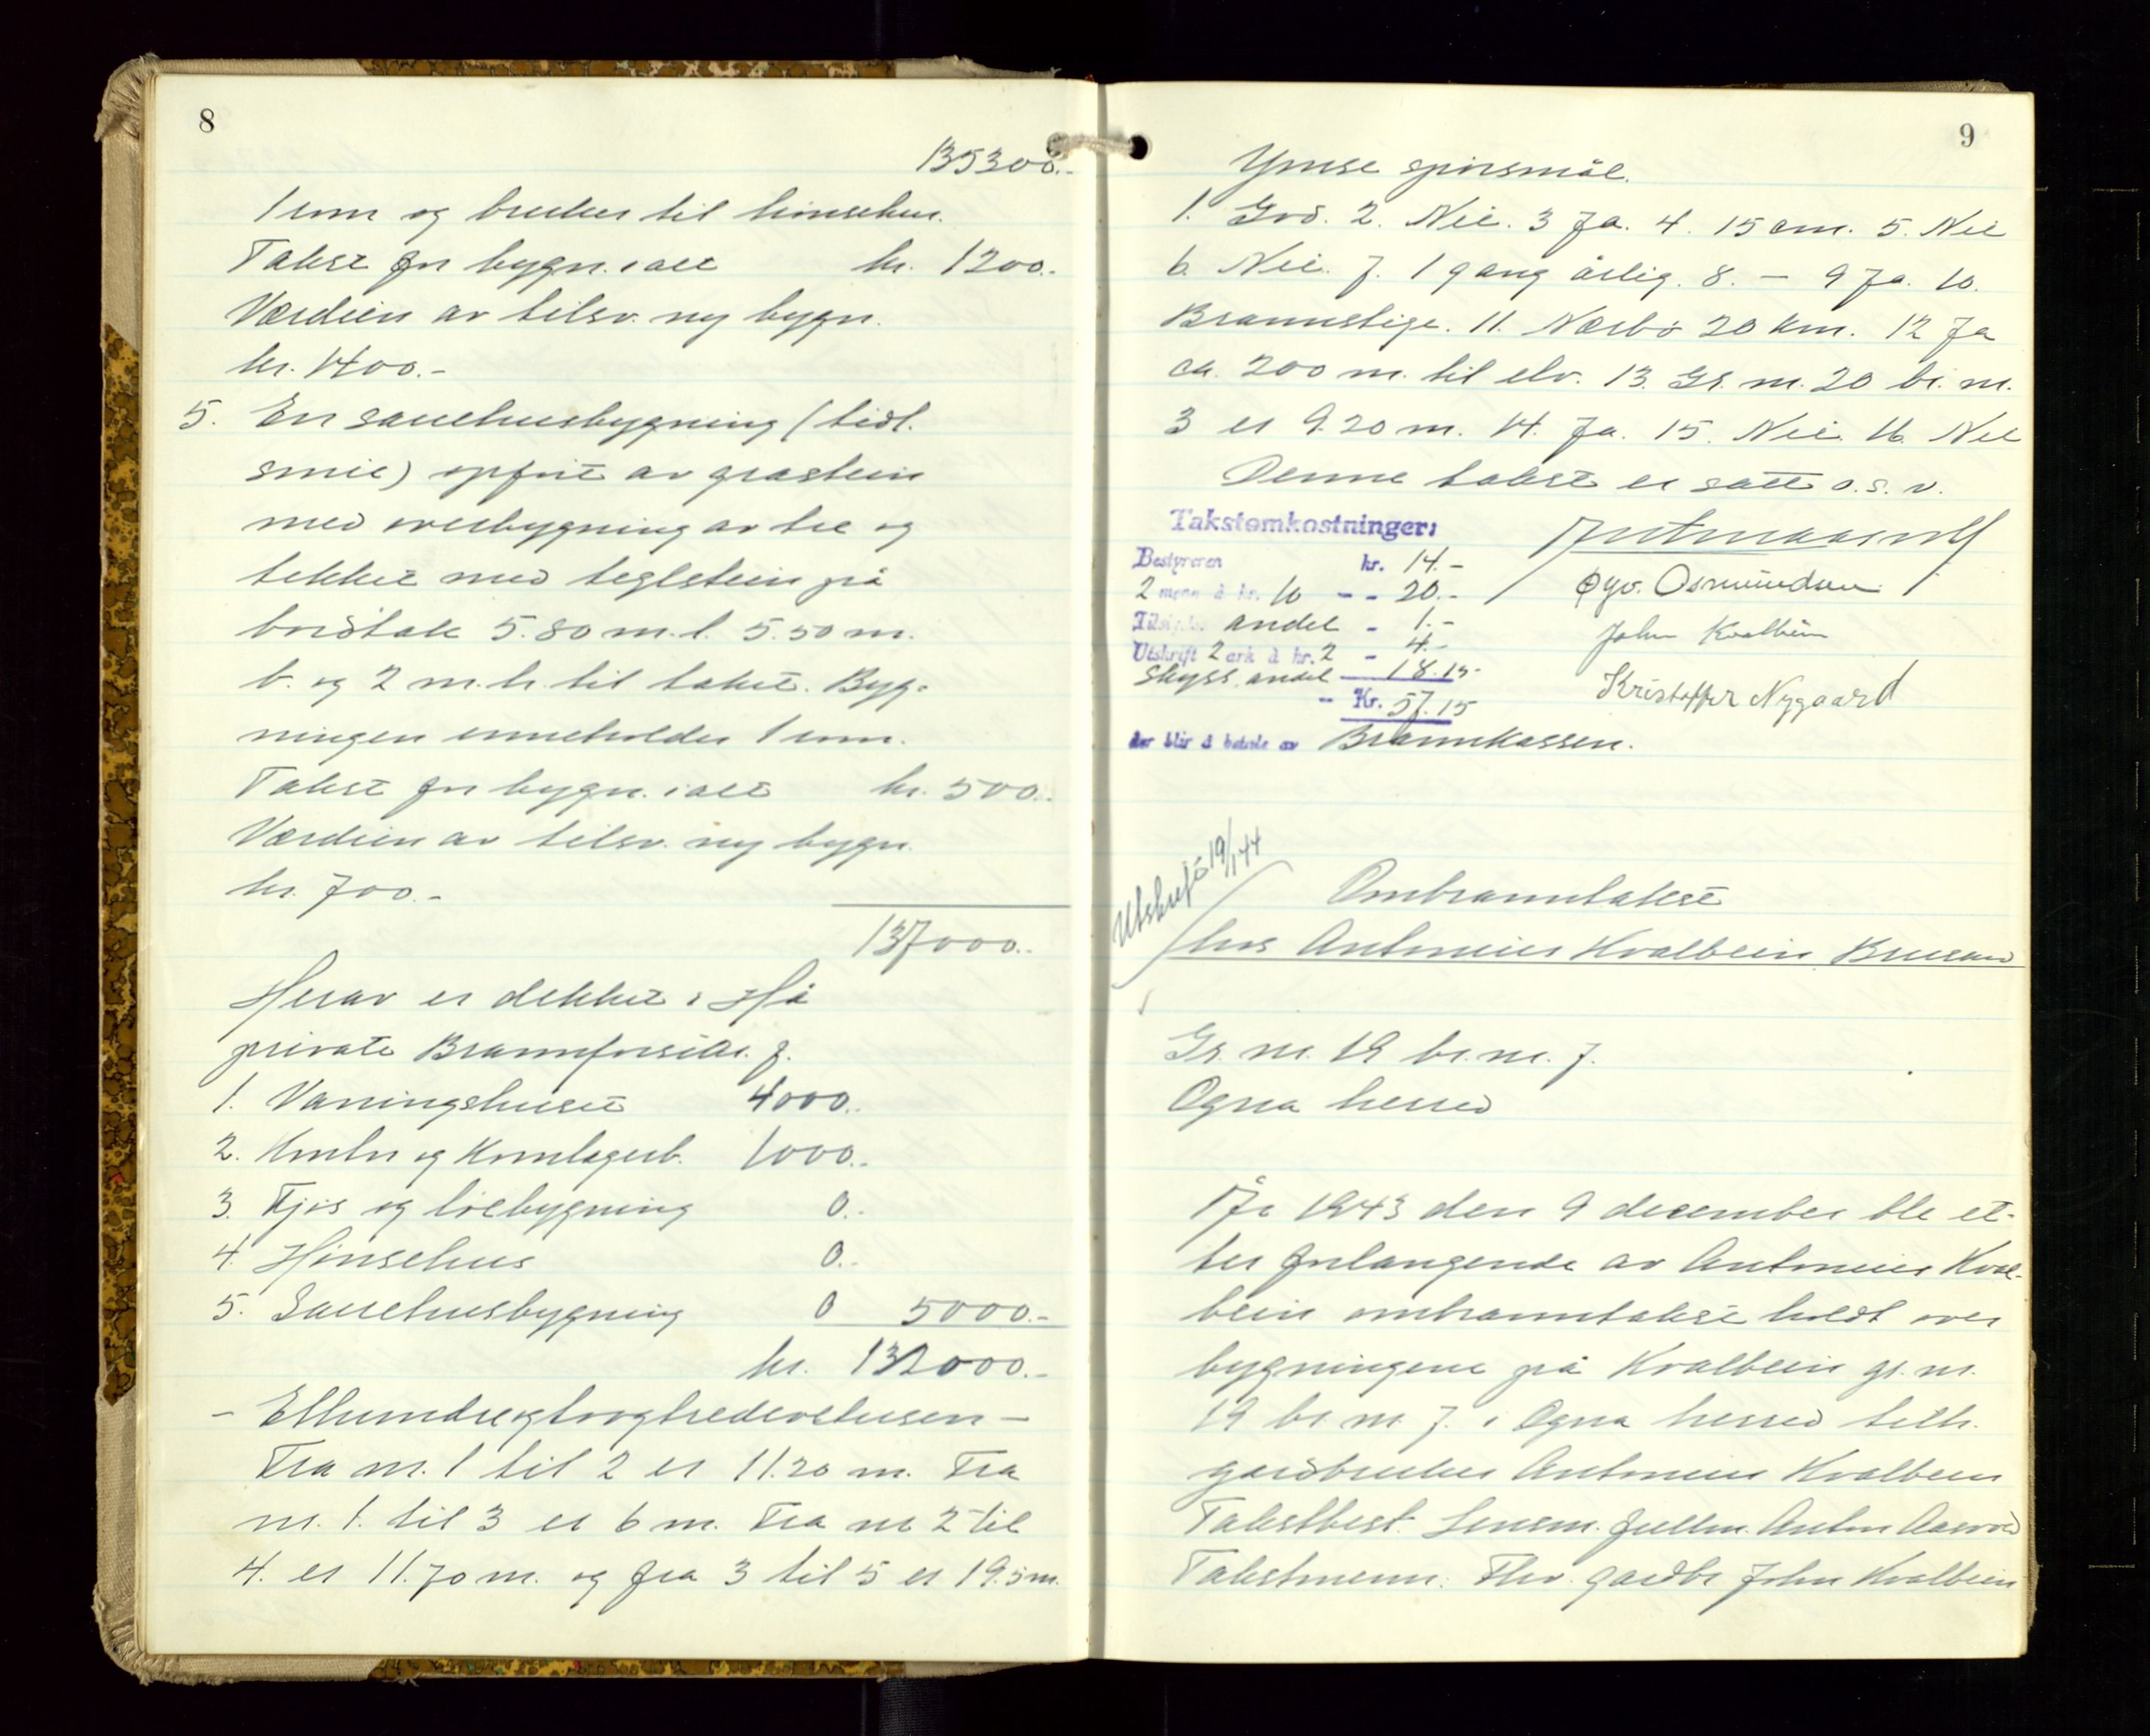 8
135300.-
1 rom og brukes til hønsehus.
Takst for bygn. i alt kr. 1200.-
Værdien av tilsv. ny bygn.
kr. 1400.-
5. En sauehusbygning (tidl.
smie) opført av gråstein
med overbygning av tre og
tekket med teglstein på
bordtak 5.80 m. l. 5.50 m.
b. og 2 m. h. til taket. Byg-
ningen inneholder 1 rom.
Takst for bygn. i alt kr. 500.-
Værdien av tilsv. ny bygn.
kr. 700.-
137000.-
Herav er dekket i Hå
private Brannforsikr. f.
1. Våningshuset 4000.-
2. Korntn og Kornlagerb. 1000.-
3. Fjøs og løebygning 0.-
4. Hønsehus 0.-
5. Sauehusbygning 0 5000.-
kr. 132000.-
- Etthundreogtoogtredevetusen -
Fra nr. 1 til 2 er 11.20 m. Fra
nr. 1. til 3 er 6 m. Fra nr 2 til
4. er 11.70 m. og fra 3 til 5 er 19.5 m.
9
Ymse spørsmål.
1. God. 2. Nei. 3 Ja. 4. 15 cm. 5. Nei
6. Nei. 7. 1 gang årlig. 8. - 9 Ja. 10.
Brannstige. 11. Nærbø 20 km. 12 Ja
ca. 200 m. til elv. 13. Gr. nr. 20 br. nr.
3 er 9.20 m. 14. Ja. 15. Nei. 16. Nei
Denne takst er satt o.s.v.
Takstomkostninger:
Bestyreren kr. 14.-
2 menn à kr. 10 - - 20.-
andel - 1.-
Utskrift 2 ark à kr. 2 - 4.-
Skyss. andel 18.15
- Kr. 57.15
der blir å betale av Brannkassen.
Øyv. Osmundsen
John Kvalbein
Kristoffer Nygaard
Utskrift 19/1 44
Ombranntakst
hos Antonius Kvalbein, Brusand
Gr. nr. 19 br. nr. 7.
Ogna herred
År 1943 den 9 december ble et-
ter forlangende av Antonius Kval-
bein ombranntakst holdt over
bygningene på Kvalbein gr. nr.
19 br. nr. 7. i Ogna herred tilh.
gårdbruker Antonius Kvalbein
Takstbest. Lensm. fullm. Anton Aasvold
Takstmenn: Thv. gårdbr John Kvalbein